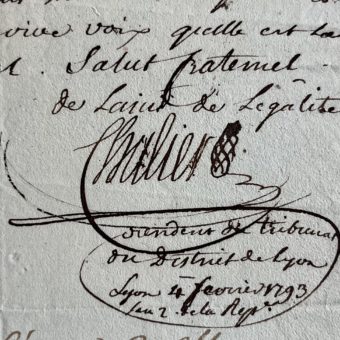 vive voix qu'elle est la
Salut fraternel
de l'ami de l'égalité
Chalier
président du tribunal
du District de Lyon
Lyon 4 février 1793
l'an 2. de la Repe.